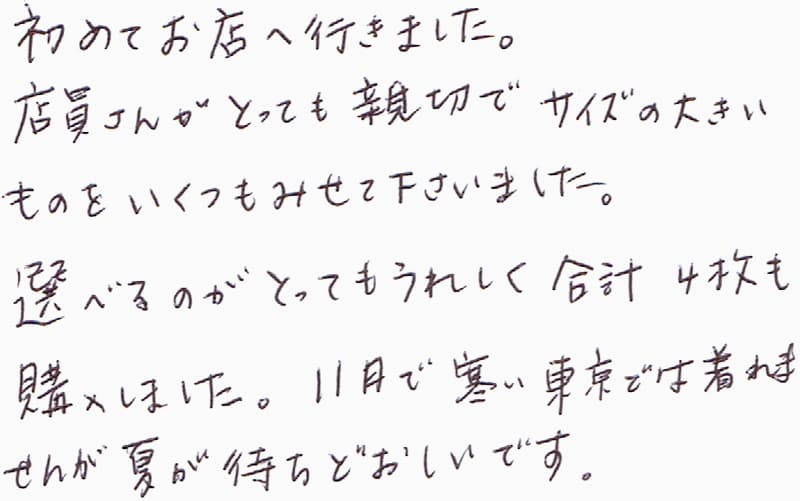 初めてお店へ行きました。
店員さんがとっても親切でサイズの大きい
ものをいくつもみせて下さいました。
選べるのがとってもうれしく合計4枚も
購入しました。11月で寒い東京では着れま
せんが夏が待ちどおしいです。